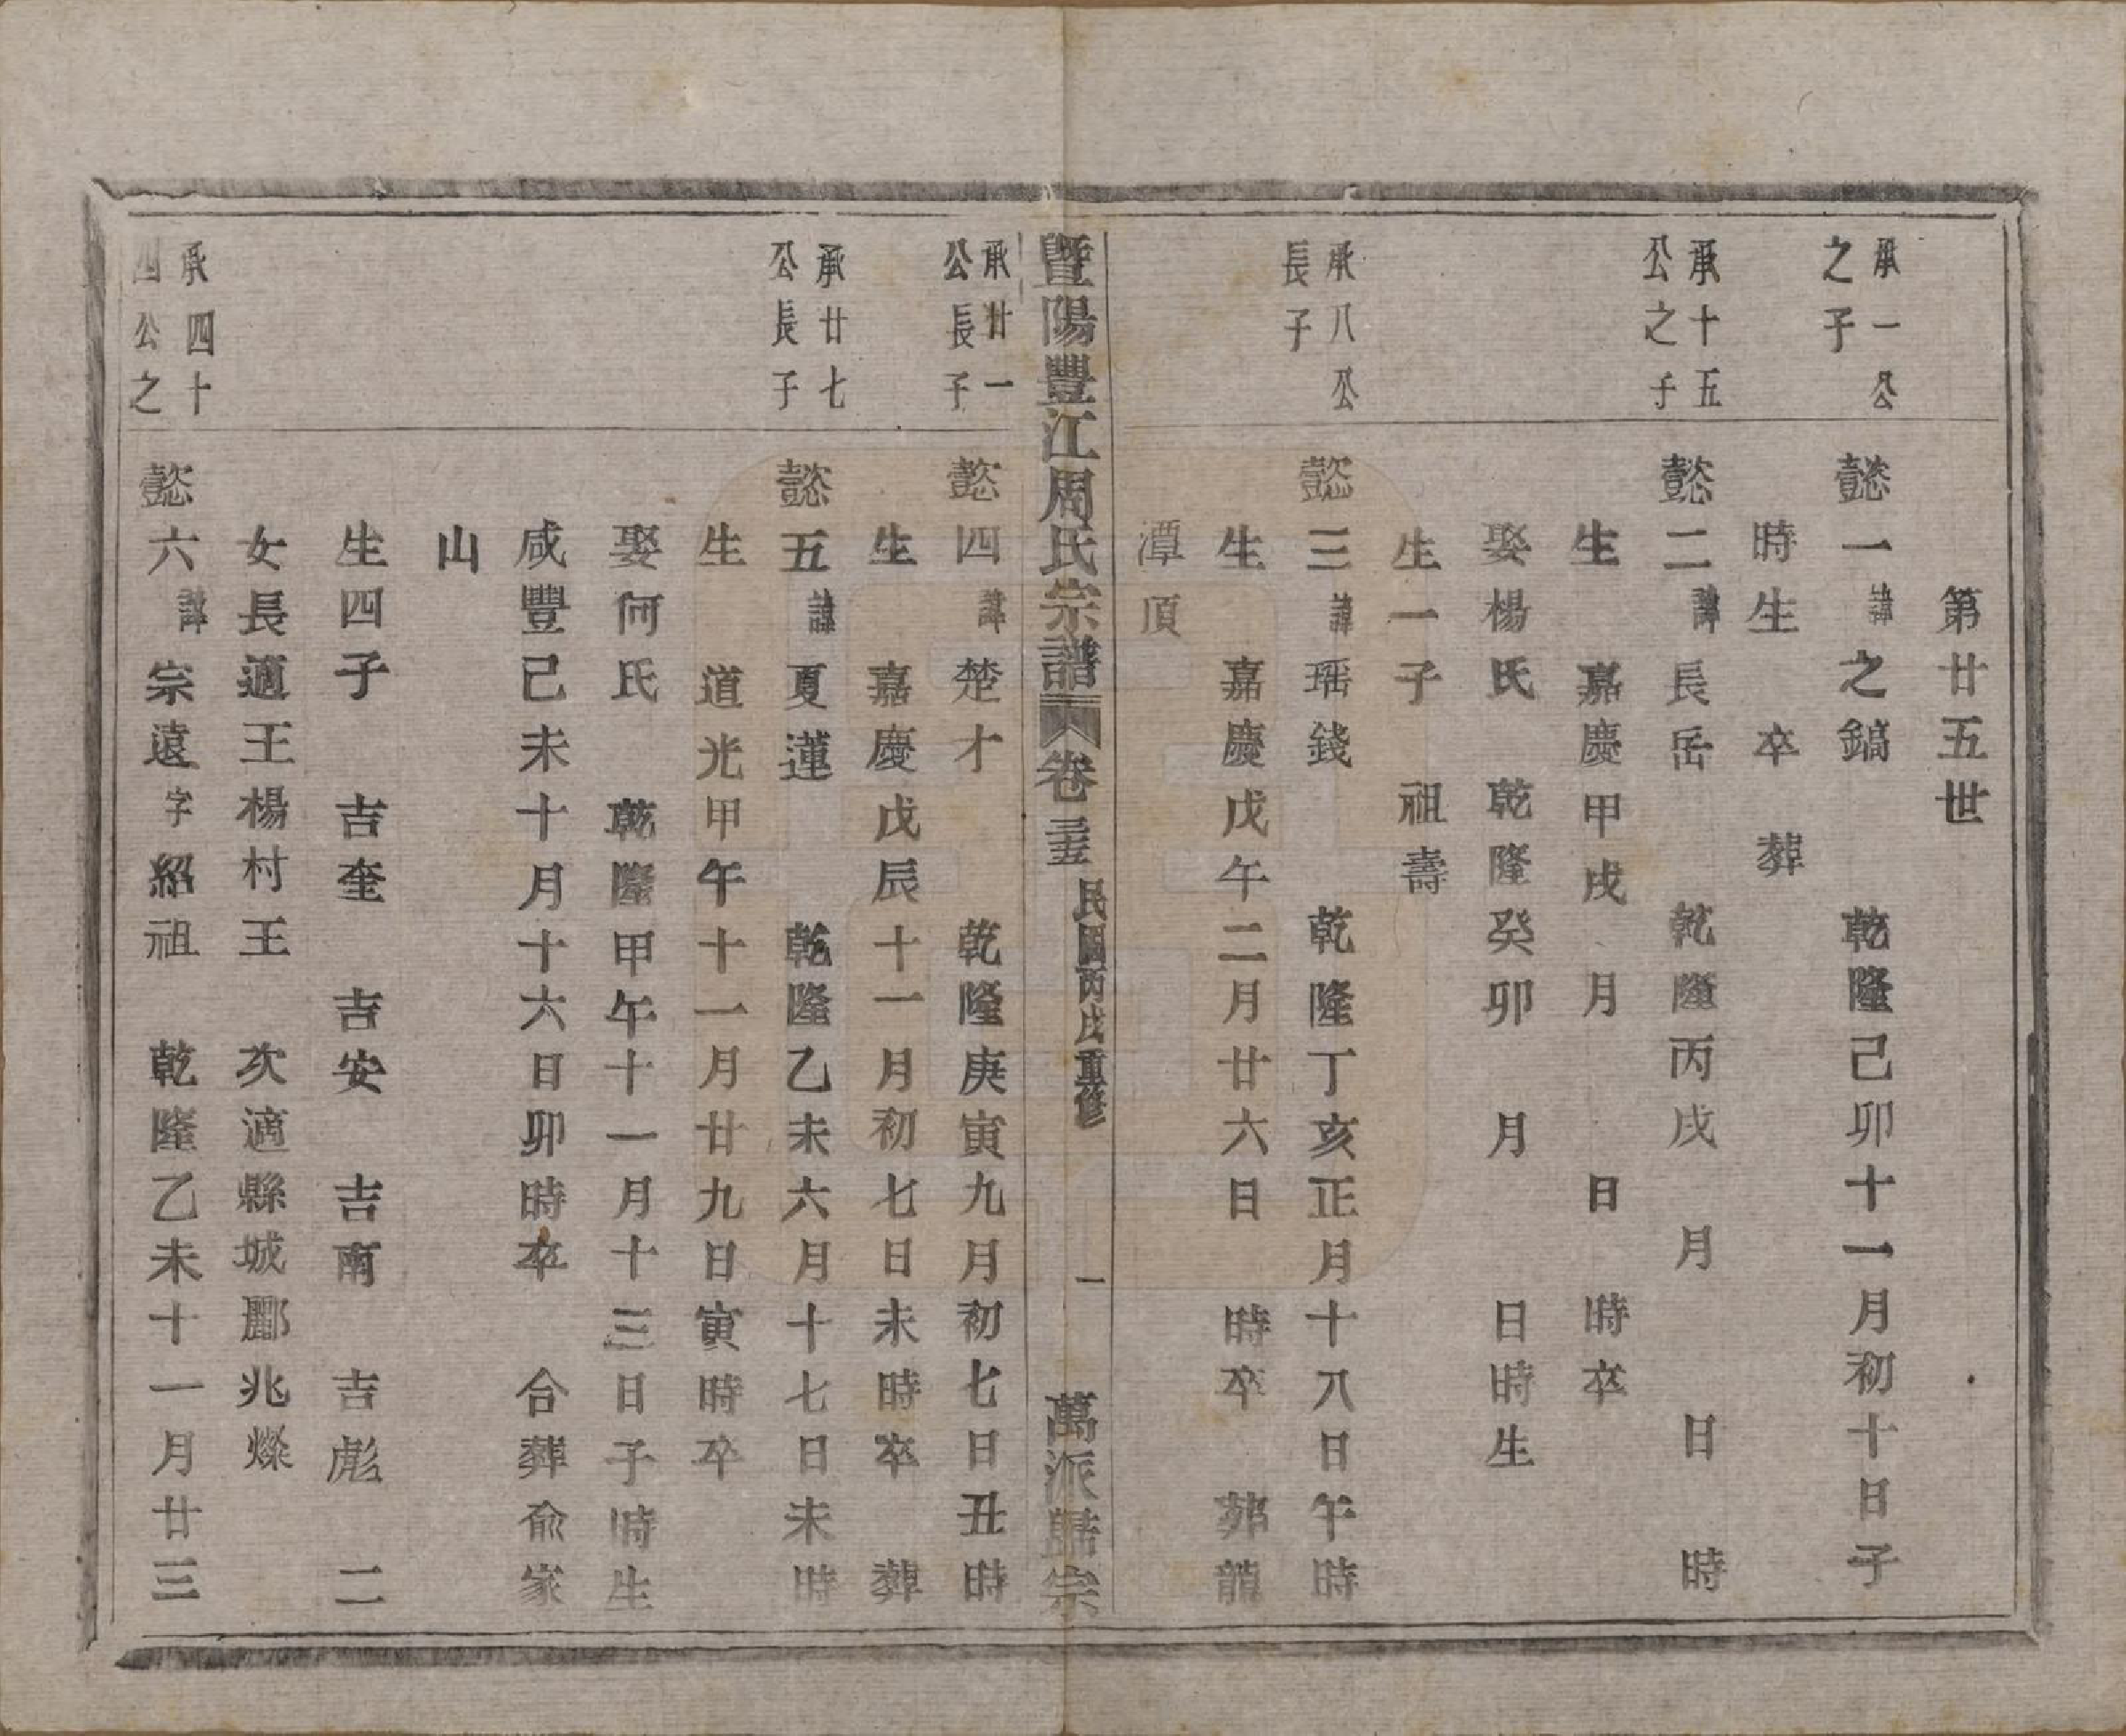 第廿五世
承一公
之子
懿一諱之鎬　乾隆己卯十一月初十日子
時生　卒　葬
承十五
公之子
懿二諱長岳　乾隆丙戌　月　日　時
生　嘉慶甲戌　月　日　時卒
娶楊氏　乾隆癸卯　月　日時生
生一子　祖壽
承八公
長子
懿三諱瑶錢　乾隆丁亥正月十八日午時
生　嘉慶戊午二月廿六日　時卒　葬龍
潭頂
暨陽豐江周氏宗譜　卷　民國丙戌重修　一　萬派歸宗
承廿一
公長子
懿四諱楚才　乾隆庚寅九月初七日丑時
生　嘉慶戊辰十一月初七日未時卒　葬
承廿七
公長子
懿五諱夏蓮　乾隆乙未六月十七日未時
生　道光甲午十一月廿九日寅時卒
娶何氏　乾隆甲午十一月十三日子時生
咸豐己未十月十六日卯時卒　合葬俞家
山
生四子　吉奎　吉安　吉南　吉彪　二
女長適王楊村王　次適縣城酈兆燦
承四十
四公之
懿六諱宗遠字紹祖　乾隆乙未十一月廿三